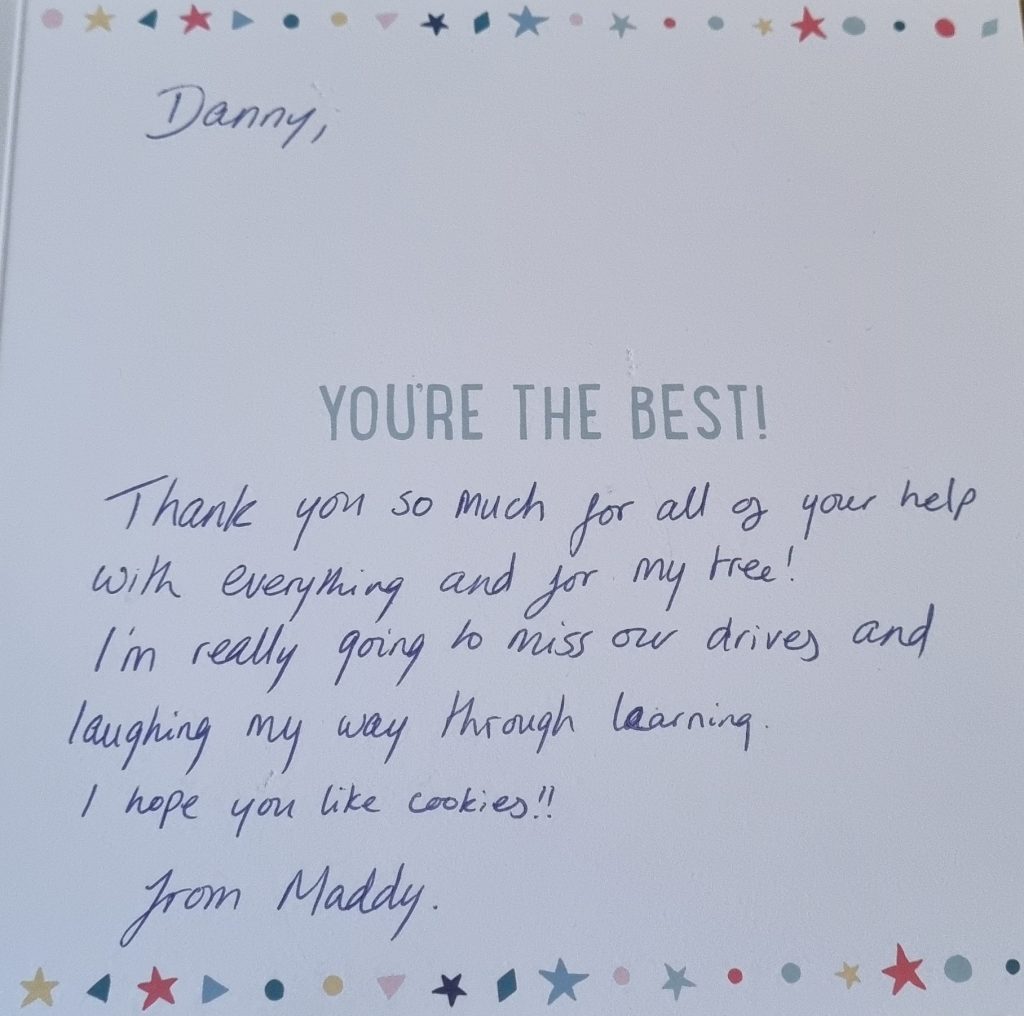 Danny,
YOU'RE THE BEST!
Thank you so much for all of your help
with everything and for my tree!
I'm really going to miss our drives and
laughing my way through learning.
I hope you like cookies!!
from Maddy.